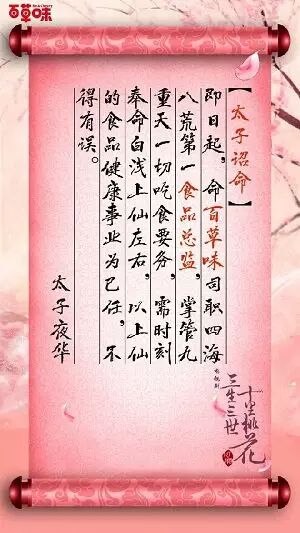 百草味
【太子诏命】
即日起，命百草味司职四海
八荒第一食品总监，掌管九
重天一切吃食要务，需时刻
奉命白浅上仙左右，以上仙
的食品健康事业为己任，不
得有误。
太子夜华
三生三世
十里桃花